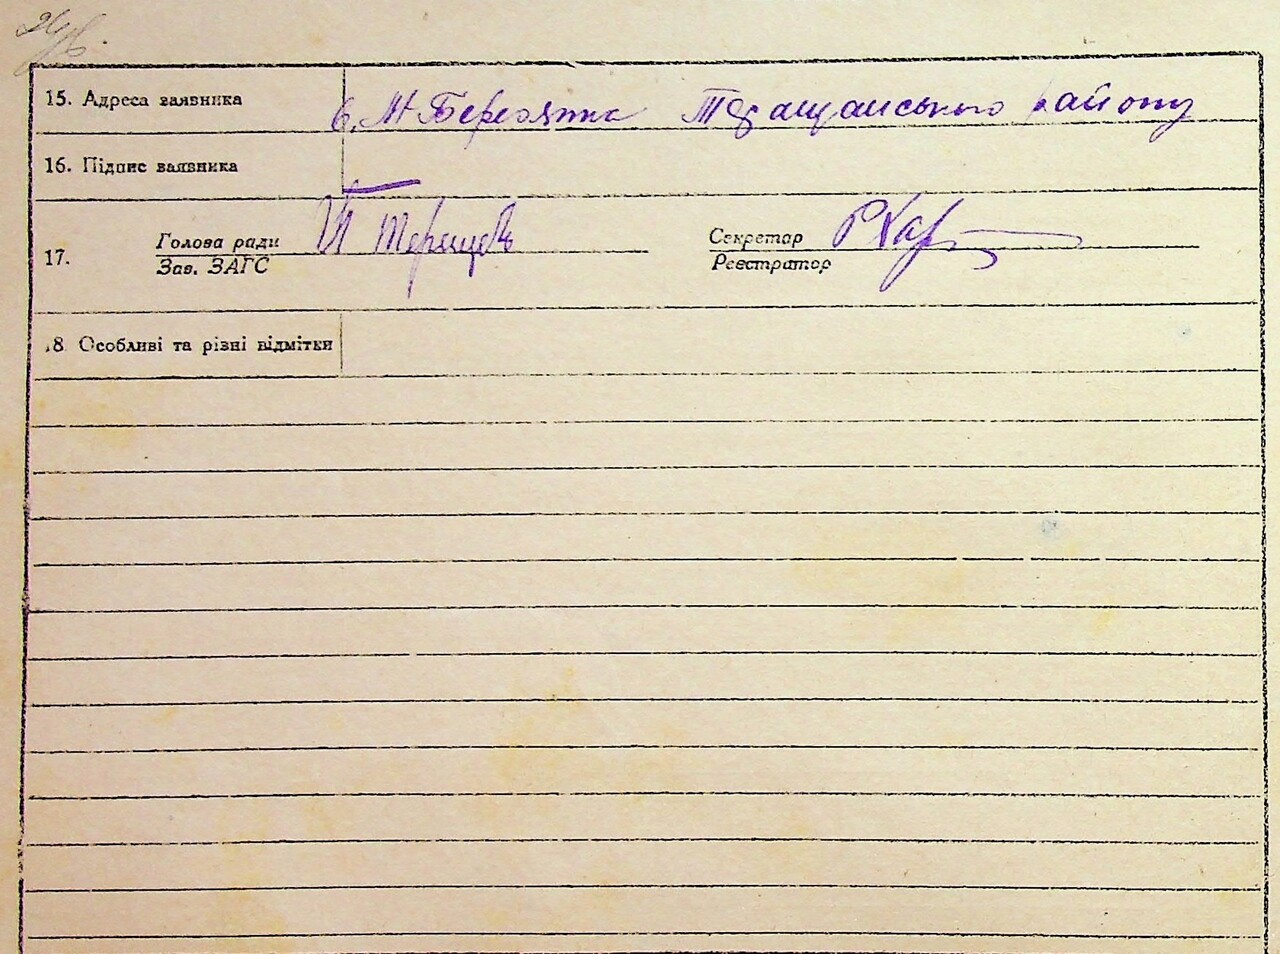 15. Адреса заявника с. М-Березянка Таращанського району
16. Підпис заявника
17.
Голова ради
Зав. ЗАГС
Секретар
Реєстратор
18 Особливі та різні відмітки